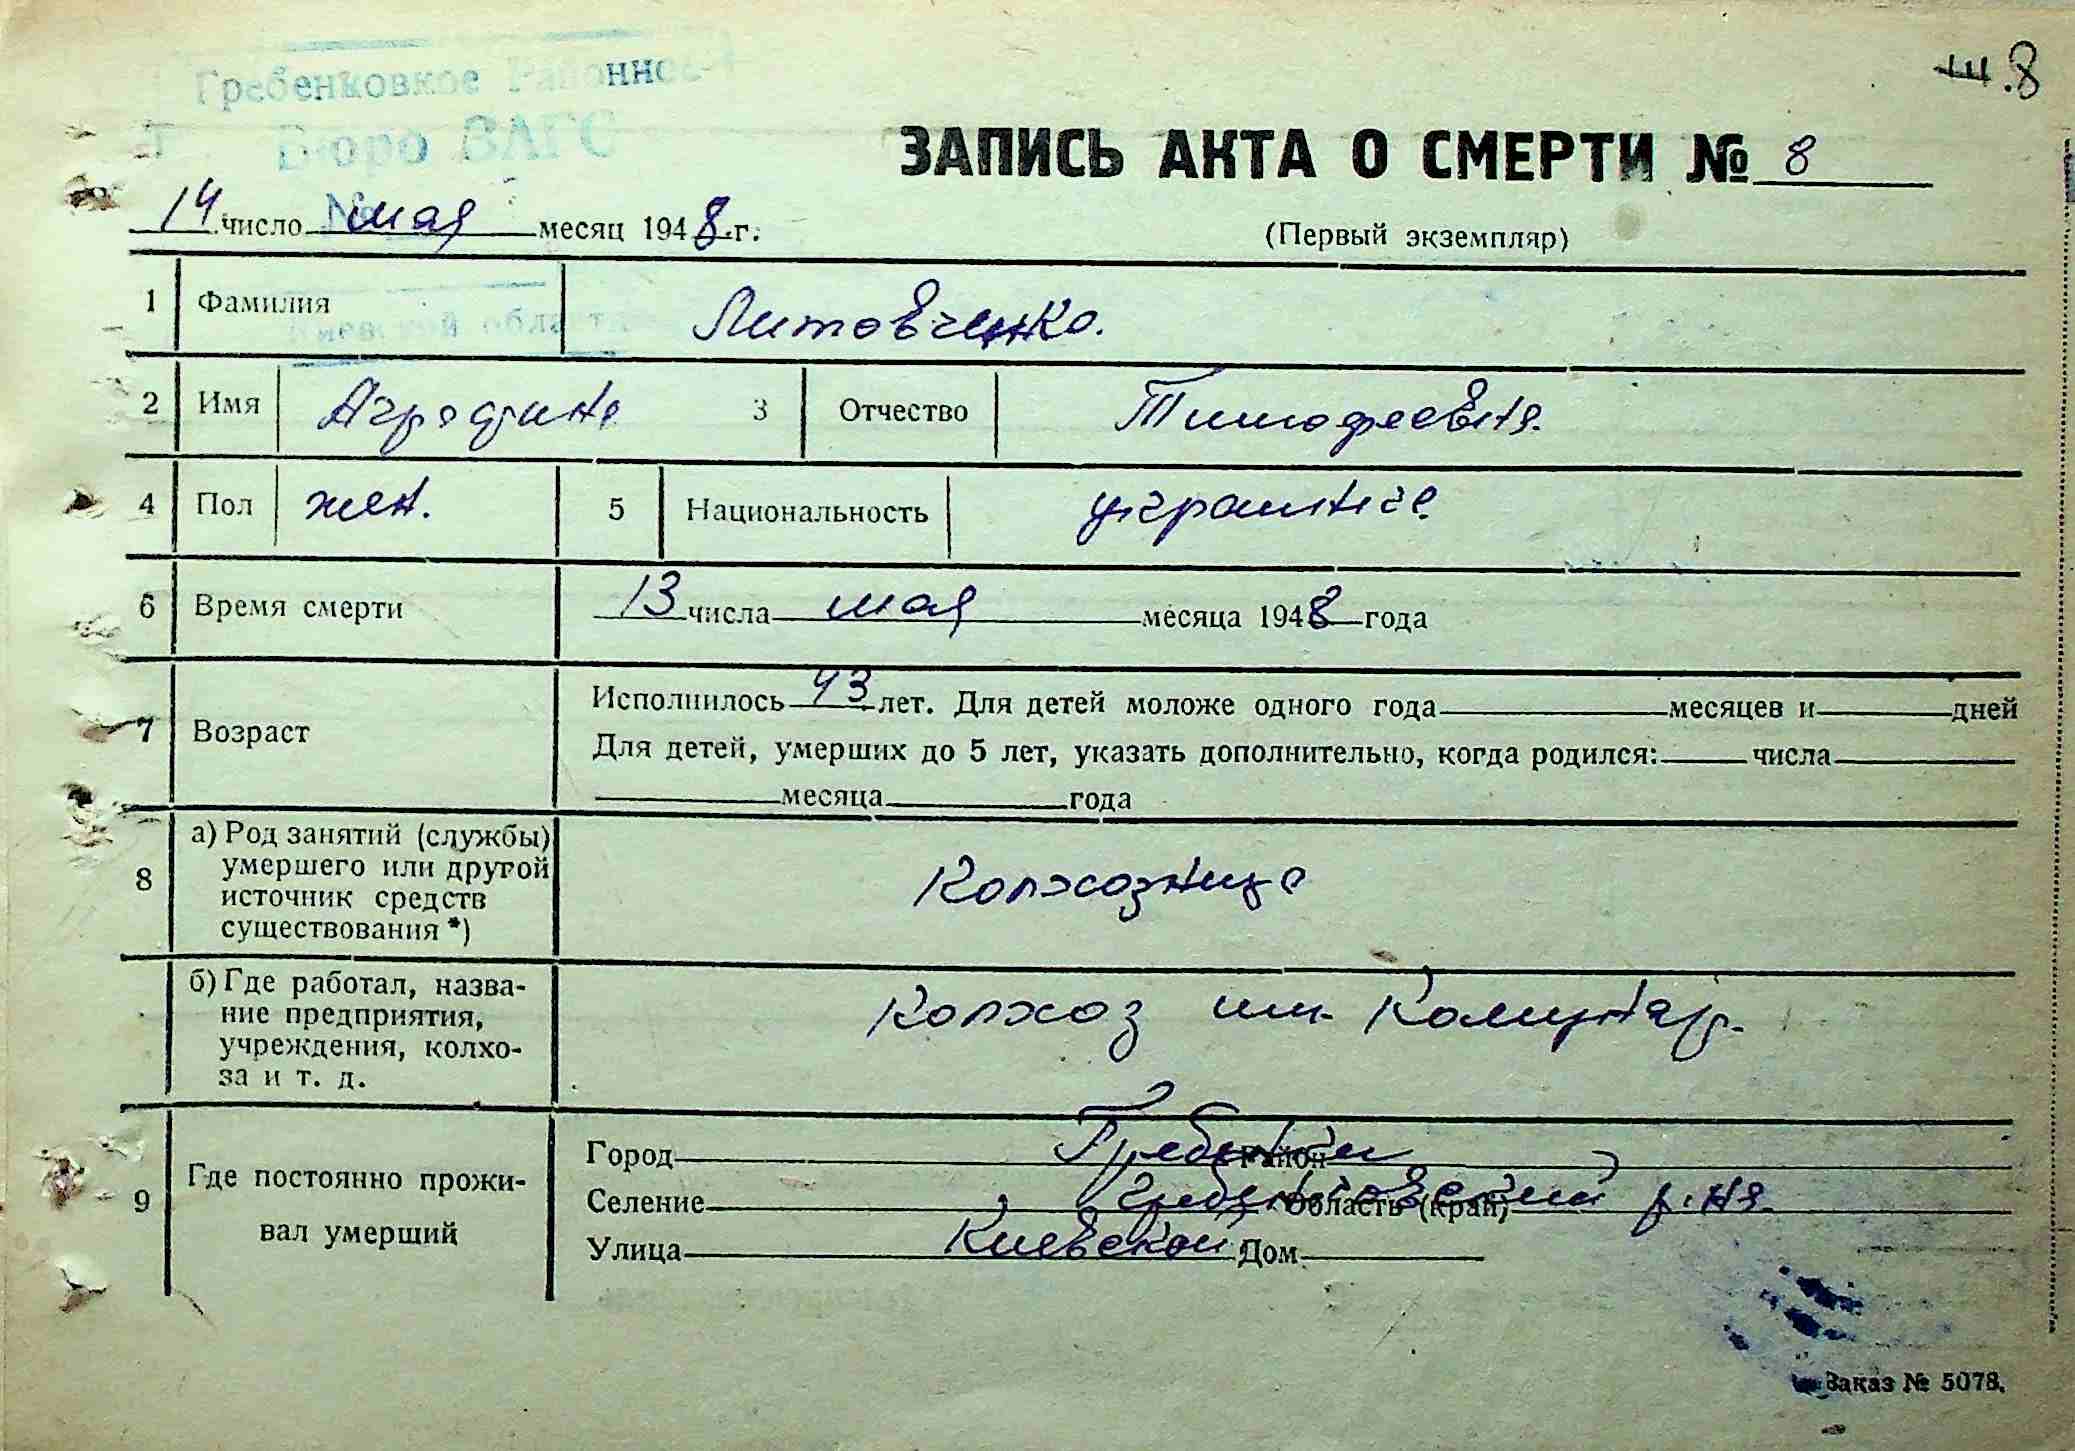 Гребенковкое Районное
Бюро ЗАГС
№
Киевской области
8
ЗАПИСЬ АКТА О СМЕРТИ № 8
14 число мая месяц 1948 г.
(Первый экземпляр)
1 Фамилия Литовченко.
2 Имя Агрофина 3 Отчество Тимофеевна.
4 Пол жен. 5 Национальность украинка
6 Время смерти 13 числа мая месяца 1948 года
7 Возраст Исполнилось 43 лет. Для детей моложе одного года месяцев и дней
Для детей, умерших до 5 лет, указать дополнительно, когда родился: числа
месяца года
8 а) Род занятий (службы)
умершего или другой
источник средств
существования *)
Колхозница
б) Где работал, назва-
ние предприятия,
учреждения, колхо-
за и т. д.
Колхоз им. Комунар.
9 Где постоянно прожи-
вал умерший
Город Гребенки Район
Селение Гребенковский р-на Область (край)
Улица Киевской Дом
Заказ № 5078.